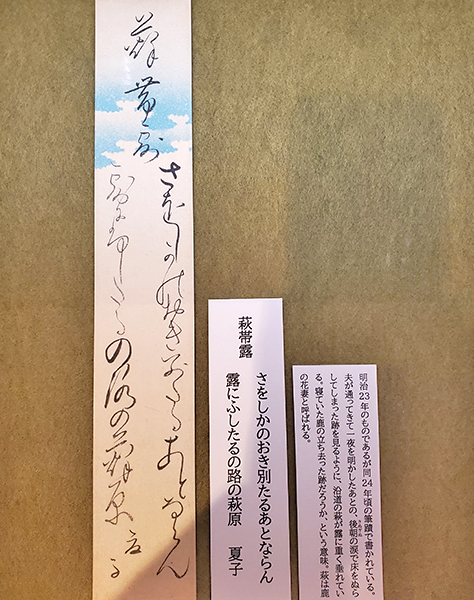 萩帯露
さをしかのおき別たるあとならん
露にふしたるの路の萩原 夏子
萩帯露
さをしかのおき別たるあとならん
露にふしたるの路の萩原 夏子
明治23年のものであるが同24年頃の筆蹟で書かれている。
夫が通ってきて一夜を明かしたあとの、後朝の涙で床をぬら
してしまった跡を見るように、沿道の萩が露に重く垂れてい
る。寝ていた鹿の立ち去った跡だろうか、という意味。萩は鹿
の花妻と呼ばれる。